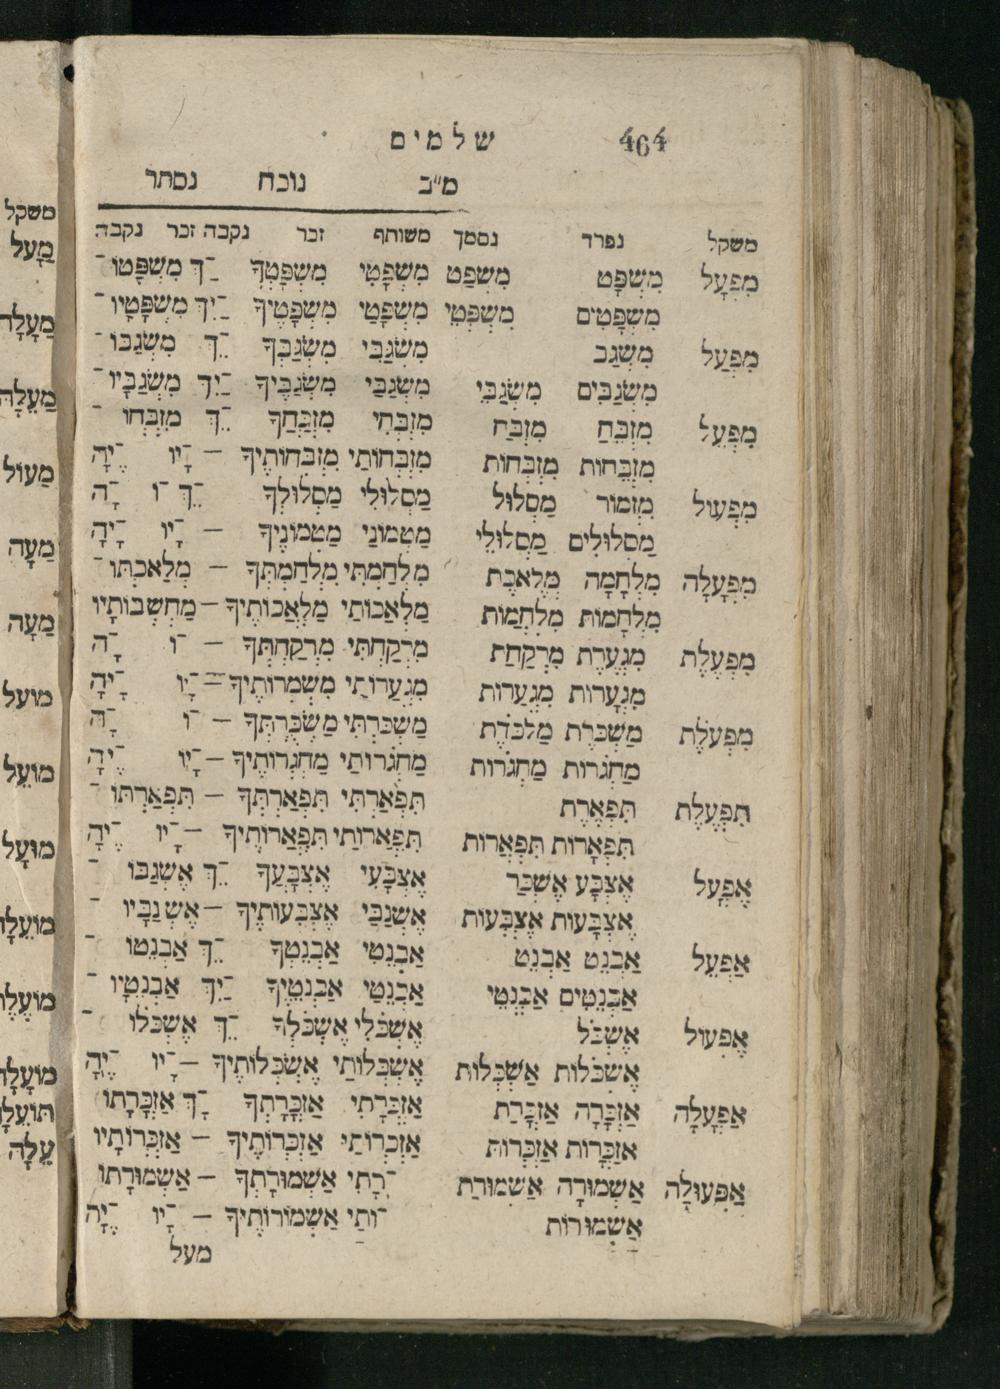 שלמים 464
מ"ב נוכח נסתר
משקל נפרד נסמך משותף זכר נקבה זכר נקבה
מִפְעָל מִשְׁפָּט מִשְׁפַּט מִשְׁפָּטִי מִשְׁפָּטְךָ ־ךְ מִשְׁפָּטוֹ ־
מִשְׁפָּטִים מִשְׁפְּטֵי מִשְׁפָּטַי מִשְׁפָּטֶיךָ ־יִךְ מִשְׁפָּטָיו ־
מִפְעַל מִשְׂגַּב מִשְׂגַּבִּי מִשְׂגַּבְּךָ ־ךְ מִשְׂגַּבּוֹ ־
מִשְׂגַּבִּים מִשְׂגַּבֵּי מִשְׂגַּבַּי מִשְׂגַּבֶּיךָ ־יִךְ מִשְׂגַּבָּיו ־
מִפְעֵל מִזְבֵּחַ מִזְבַּח מִזְבְּחִי מִזְבַּחֲךָ ־ךְ מִזְבְּחוֹ ־
מִזְבֵּחוֹת מִזְבְּחוֹת מִזְבְּחוֹתַי מִזְבְּחוֹתֶיךָ — ־ָיו ־ֶיהָ
מִפְעוֹל מִזְמוֹר מַסְלוּל מַסְלוּלִי מַסְלוּלְךָ ־ךְ ־וֹ ־ָהּ
מַסְלוּלִים מַסְלוּלֵי מַטְמוֹנַי מַטְמוֹנֶיךָ — ־ָיו ־ֶיהָ
מִפְעָלָה מִלְחָמָה מְלֶאכֶת מִלְחַמְתִּי מִלְחַמְתְּךָ — מְלַאכְתּוֹ ־
מִלְחָמוֹת מִלְחֲמוֹת מַלְאֲכוֹתַי מַלְאֲכוֹתֶיךָ — מַחְשְׁבוֹתָיו
מִפְעֶלֶת מִגְעֶרֶת מִרְקַחַת מִרְקַחְתִּי מִרְקַחְתְּךָ — ־וֹ ־ָה
מִגְעָרוֹת מִגְעֲרוֹת מִגְעֲרוֹתַי מִשְׁמְרוֹתֶיךָ — ־ָיו ־ֶיהָ
מִפְעֹלֶת מַשְׂכֹּרֶת מַלְכֹּדֶת מַשְׂכֻּרְתִּי מַשְׂכֻּרְתְּךָ — ־וֹ ־ָהּ
מַחְגֹּרוֹת מַחְגְּרוֹת מַחְגְּרוֹתַי מַחְגְּרוֹתֶיךָ — ־ָיו ־ֶיהָ
תִפְעֶלֶת תִּפְאֶרֶת תִּפְאַרְתִּי תִּפְאַרְתְּךָ — תִּפְאַרְתּוֹ ־
תִּפְאָרוֹת תִּפְאֲרוֹת תִּפְאֲרוֹתַי תִּפְאֲרוֹתֶיךָ — ־ָיו ־ֶיהָ
אֶפְעָל אֶצְבָּע אֶשְׁכַּר אֶצְבָּעִי אֶצְבָּעֲךָ ־ךְ אֶשְׁנַבּוֹ ־
אֶצְבָּעוֹת אֶצְבְּעוֹת אֶשְׁנַבַּי אֶצְבְּעוֹתֶיךָ — אֶשְׁנַבָּיו ־
אַפְעֵל אַבְנֵט אַבְנֵט אַבְנֵטִי אַבְנֵטְךָ ־ךְ אַבְנֵטוֹ ־
אַבְנֵטִים אַבְנֵטֵי אַבְנֵטַי אַבְנֵטֶיךָ ־יִךְ אַבְנֵטָיו ־
אֶפְעוֹל אֶשְׁכֹּל אֶשְׁכֹּלִי אֶשְׁכֹּלְךָ ־ךְ אֶשְׁכֹּלוֹ ־
אֶשְׁכֹּלוֹת אַשְׁכְּלוֹת אֶשְׁכְּלוֹתַי אֶשְׁכְּלוֹתֶיךָ — ־ָיו ־ֶיהָ
אַפְעָלָה אַזְכָּרָה אַזְכָּרַת אַזְכָּרָתִי אַזְכָּרָתְךָ ־ָךְ אַזְכָּרָתוֹ ־
אַזְכָּרוֹת אַזְכְּרוֹת אַזְכְּרוֹתַי אַזְכְּרוֹתֶיךָ — אַזְכְּרוֹתָיו ־
אַפְעוּלָה אַשְׁמוּרָה אַשְׁמוּרַת ־רָתִי אַשְׁמוּרָתְךָ — אַשְׁמוּרָתוֹ
אַשְׁמוּרוֹת ־וֹתַי אַשְׁמוֹרוֹתֶיךָ — ־ָיו ־ֶיהָ
מעל
משקל
מַעַל
מַעֲלָה
מַעֲלָה
מַעוֹל
מַעָה
מַעָה
מועל
מוֹעֵל
מוּעָל
מוֹעֵלָה
מוֹעֶלֶת
מוּעָלָה
תּוֹעֵלָה
עֵלָה